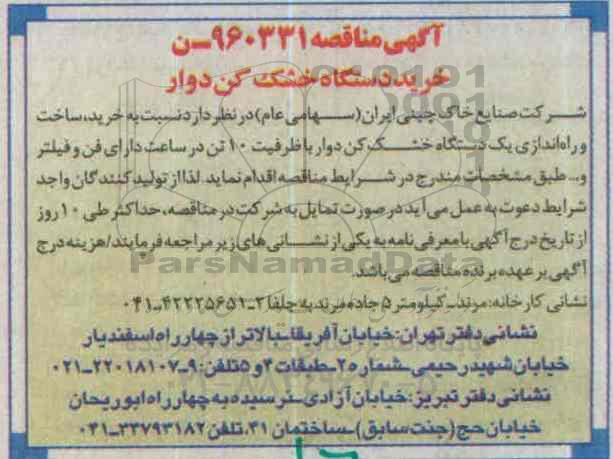 آگهی مناقصه ۹۶۰۳۳۱-ن
خرید دستگاه خشک کن دوار
شرکت صنایع خاک چینی ایران (سهامی عام) در نظر دارد نسبت به خرید، ساخت
و راه اندازی یک دستگاه خشک کن دوار با ظرفیت ۱۰ تن در ساعت دارای فن و فیلتر
و... طبق مشخصات مندرج در شرایط مناقصه اقدام نماید. لذا از تولید کنندگان واجد
شرایط دعوت به عمل می آید در صورت تمایل به شرکت در مناقصه، حداکثر طی ۱۰ روز
از تاریخ درج آگهی با معرفی نامه به یکی از نشانی های زیر مراجعه فرمایند/هزینه درج
آگهی بر عهده برنده مناقصه می باشد.
ParsNamadData
نشانی کارخانه: مرند- کیلومتر ۵ جاده مرند به جلفا ۲-۴۲۲۲۵۶۵۱-۰۴۱
نشانی دفتر تهران: خیابان آفریقا-بالاتر از چهارراه اسفندیار
خیابان شهید رحیمی-شماره ۲۵-طبقات ۴ و ۵ تلفن: ۹-۲۲۰۱۸۱۰۷-۰۲۱
نشانی دفتر تبریز: خیابان آزادی-نرسیده به چهارراه ابوریحان
خیابان حج (جنت سابق)-ساختمان ۴۱، تلفن ۳۳۷۹۳۱۸۲-۰۴۱